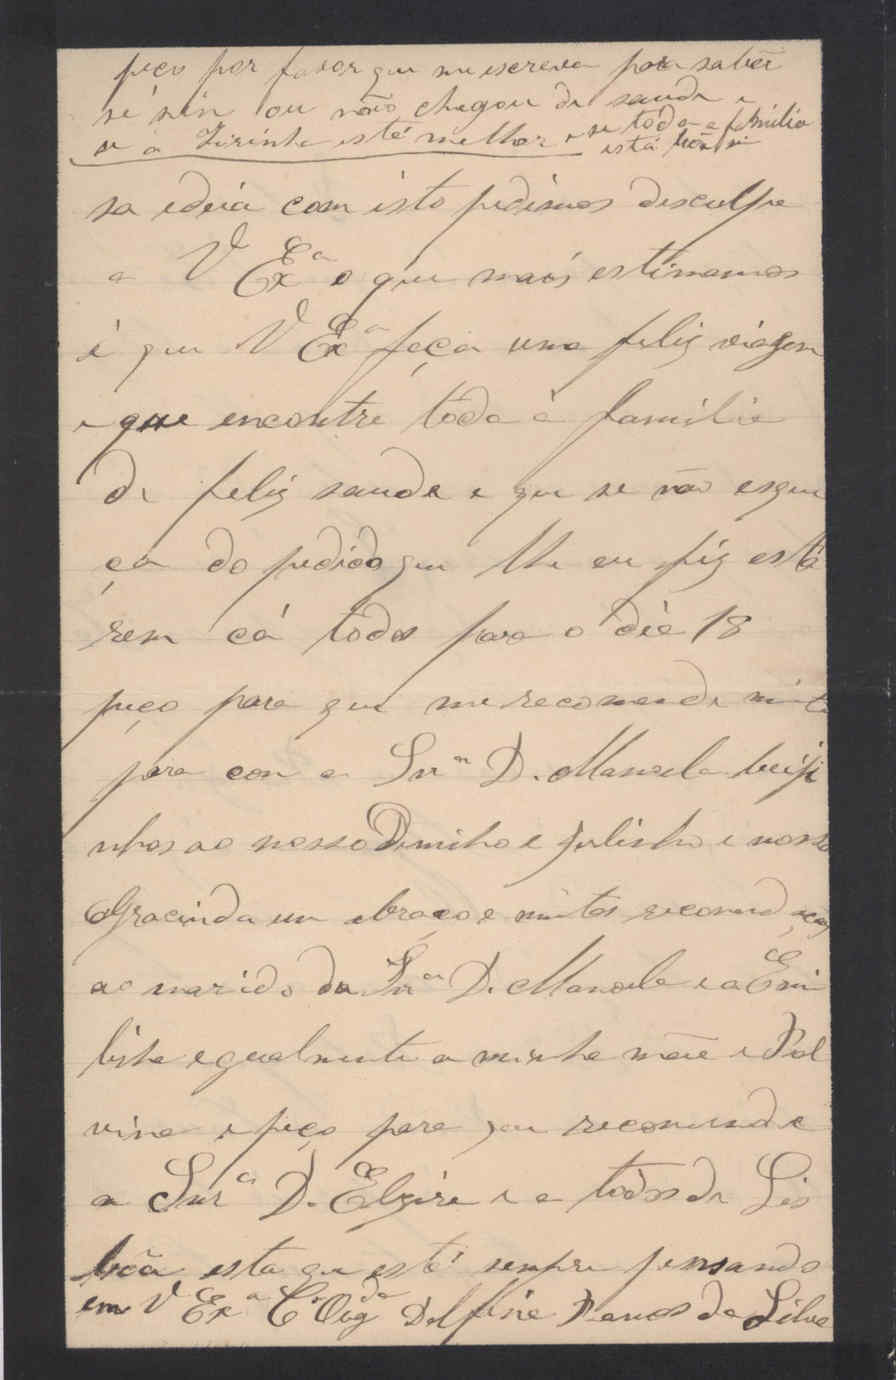 peço por favor que me escreva para saber
se sin ou não chegou de saude e
se a Zirinha está melhor e se toda a familia
está boa
sa ideia com isto pedimos desculpe
a V Exª o que mais estimamos
é que V Exª faça uma feliz viagem
e que encontre toda a familia
de feliz saude e que se não esque
ça do pedido que lhe eu fiz está
rem cá todos para o dia 18
peço para que me recomende muito
para con a Snrª D. Manoela beiji
nhos ao nosso Deminho e Julinho e nossa
Gracinda um abraço e muitas recomendações
ao marido da Snrª D. Manoela e a Emi
linha egualmente a minha mãe e Pal
vina e peço para que recomende
a Snrª D. Elzira e a todos de Lis
bôa esta que está sempre pensando
em V Exª Cª Obgda Delfina da Silva